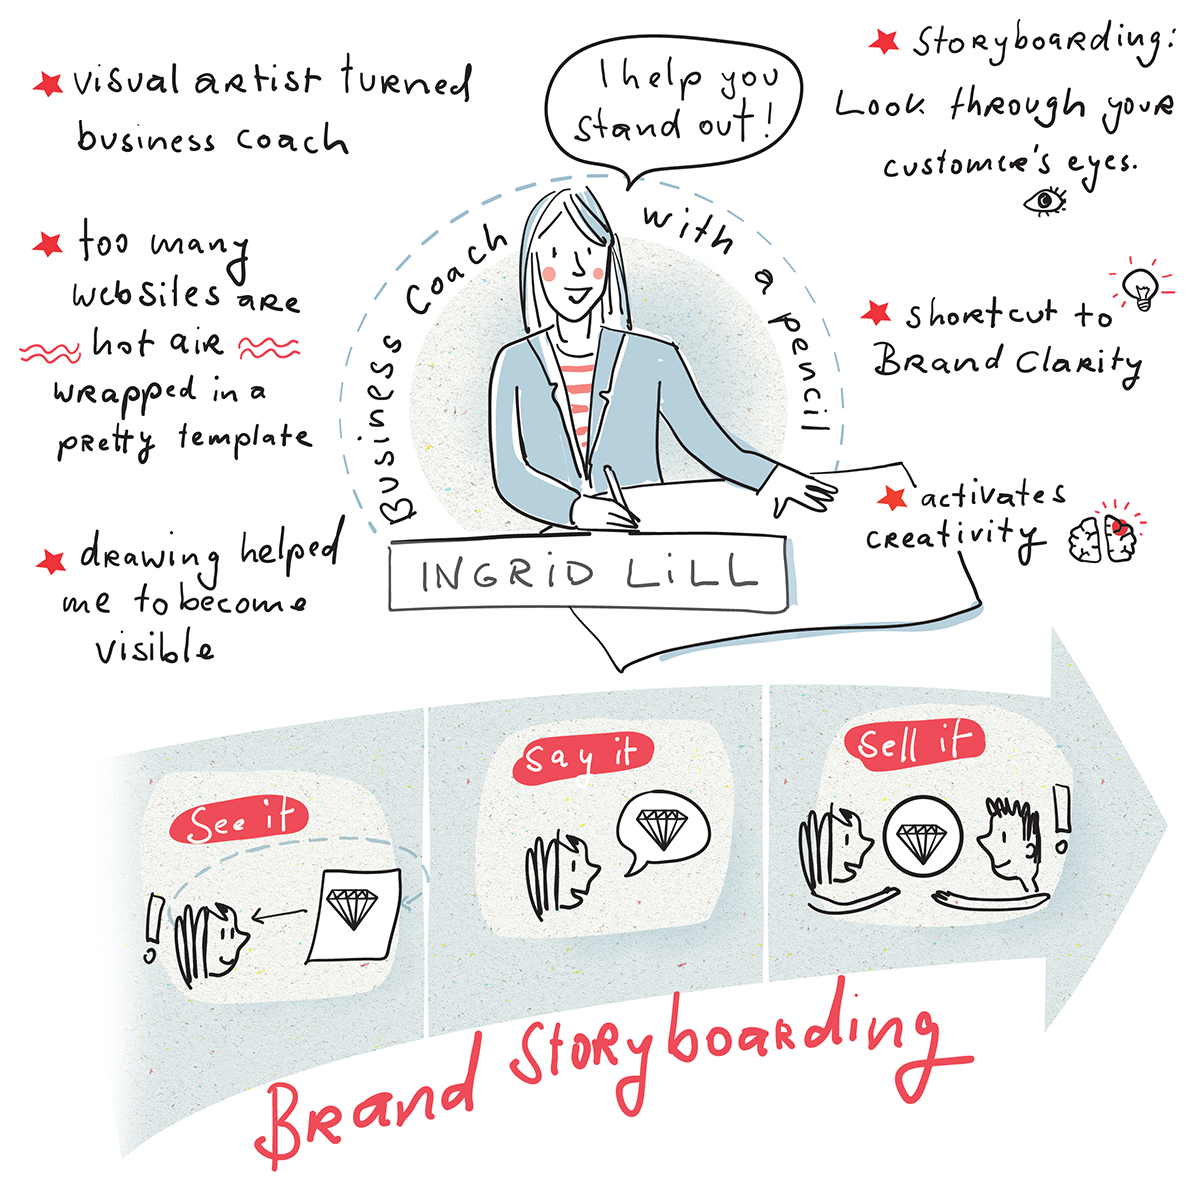 visual artist turned
business coach
too many
websites are
hot air
wrapped in a
pretty template
drawing helped
me to become
visible
I help you
stand out!
Business Coach with a pencil
INGRID LILL
Storyboarding:
Look through your
customer's eyes.
shortcut to
Brand Clarity
activates
creativity
See it
say it
Sell it
!
!
Brand Storyboarding